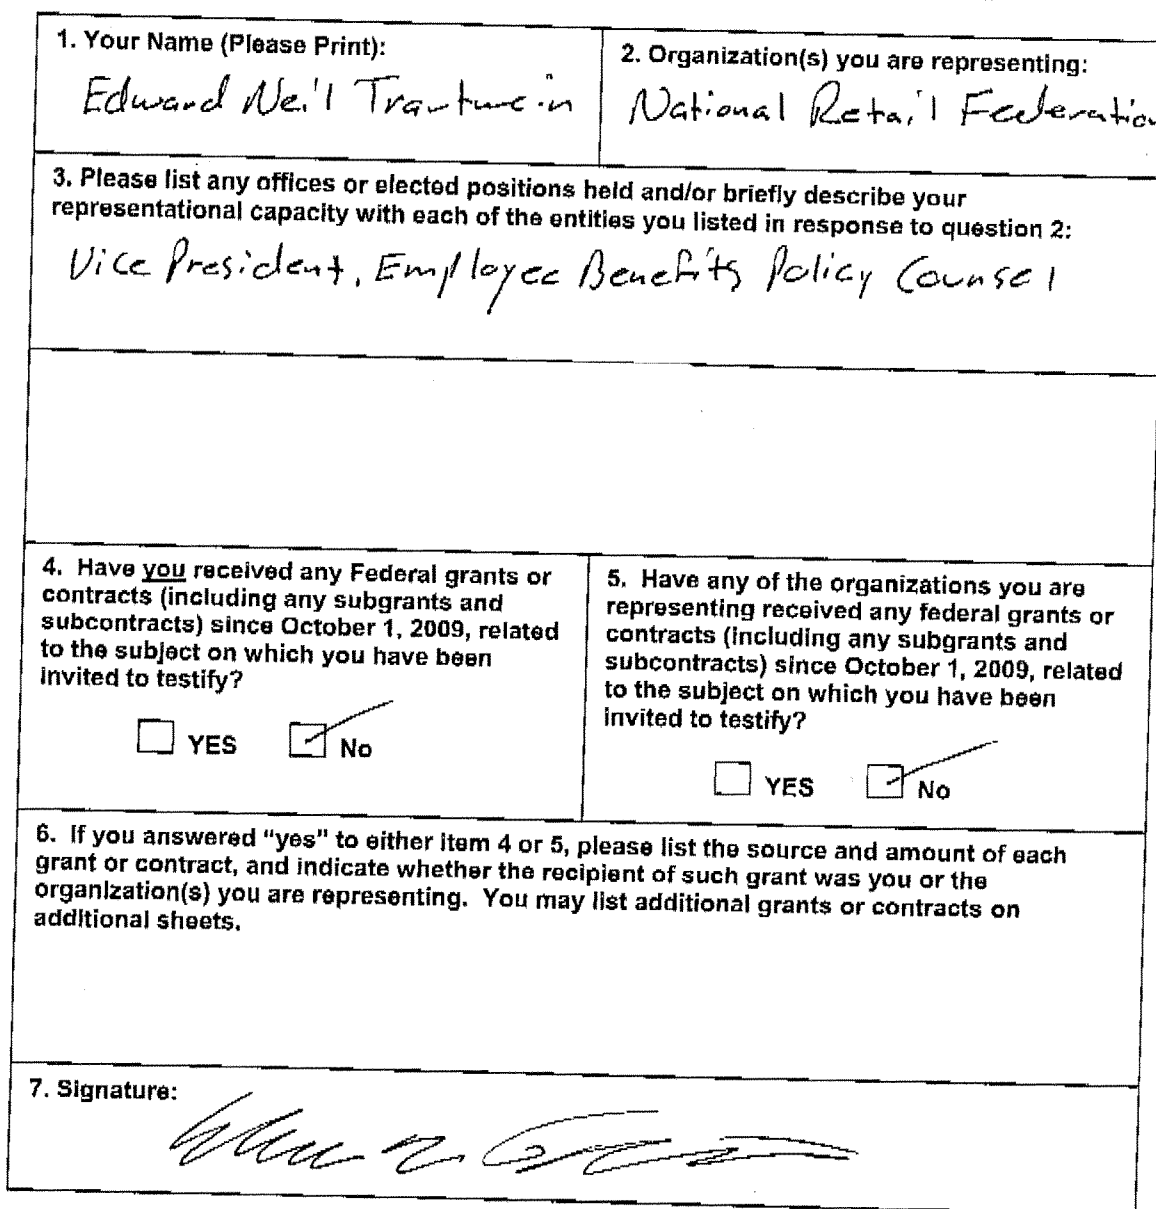 1. Your Name (Please Print):
Edward Neil Trautwein
2. Organization(s) you are representing:
National Retail Federation
3. Please list any offices or elected positions held and/or briefly describe your
representational capacity with each of the entities you listed in response to question 2:
Vice President, Employee Benefits Policy Counsel
4. Have you received any Federal grants or
contracts (including any subgrants and
subcontracts) since October 1, 2009, related
to the subject on which you have been
invited to testify?
YES No
5. Have any of the organizations you are
representing received any federal grants or
contracts (including any subgrants and
subcontracts) since October 1, 2009, related
to the subject on which you have been
invited to testify?
YES No
6. If you answered "yes" to either item 4 or 5, please list the source and amount of each
grant or contract, and indicate whether the recipient of such grant was you or the
organization(s) you are representing. You may list additional grants or contracts on
additional sheets.
7. Signature: